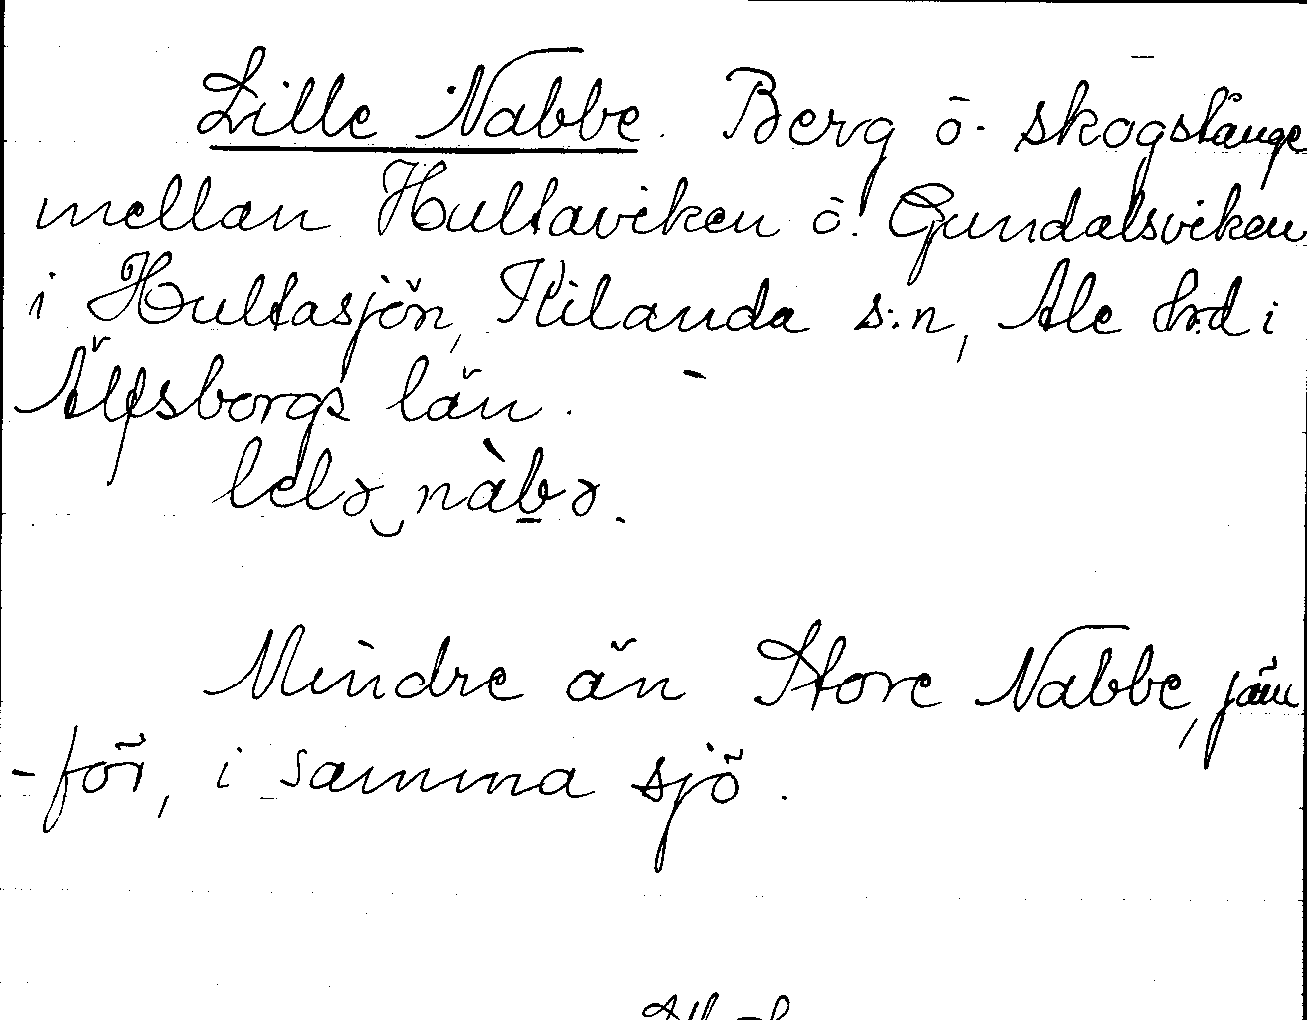 Lille Nabbe. Berg ö. skogstånge
mellan Hultaviken ö. Gundalsviken
i Hultasjön, Kilanda s:n, Ale hrd i
Älfsborgs län.
lelə nàbə.
Mindre än Store Nabbe, jäm
-för, i samma sjö.